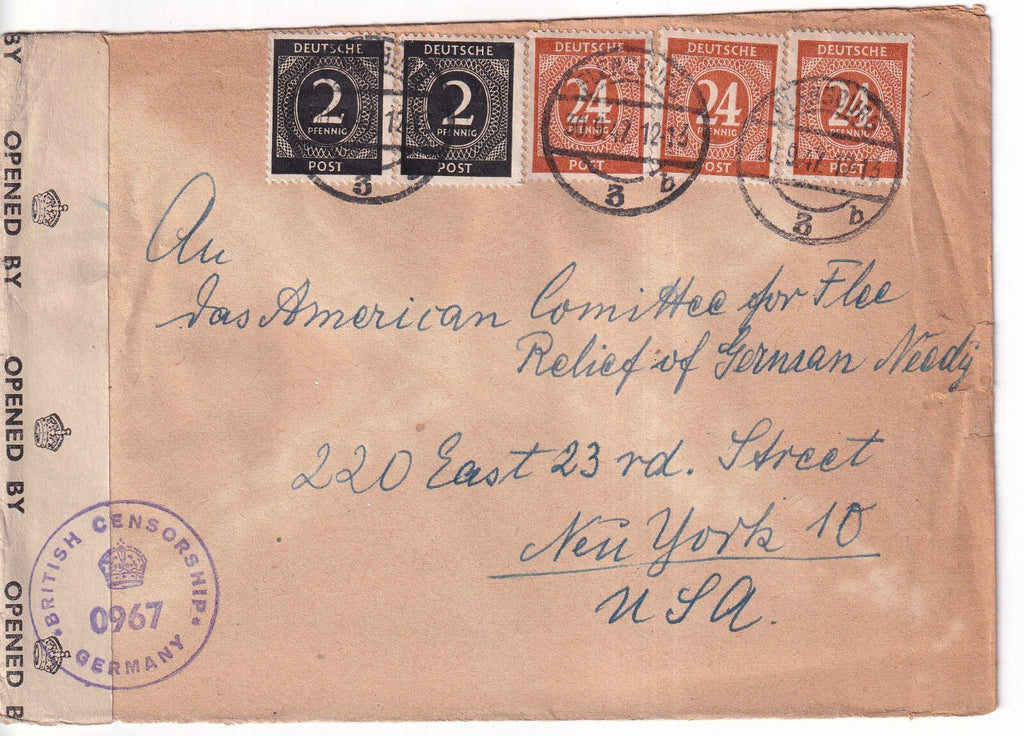 DEUTSCHE
2
PFENNIG
POST
DEUTSCHE
2
PFENNIG
POST
DEUTSCHE
24
PFENNIG
POST
DEUTSCHE
24
PFENNIG
POST
DEUTSCHE
24
PFENNIG
POST
12-13
3
b
9.47.
3
b
An
das American Comittee for Flee
Relief of German Needy
220 East 23 rd. Street
Neu York 10
USA.
BY
OPENED BY
OPENED BY
OPENED B
BRITISH CENSORSHIP
0967
GERMANY